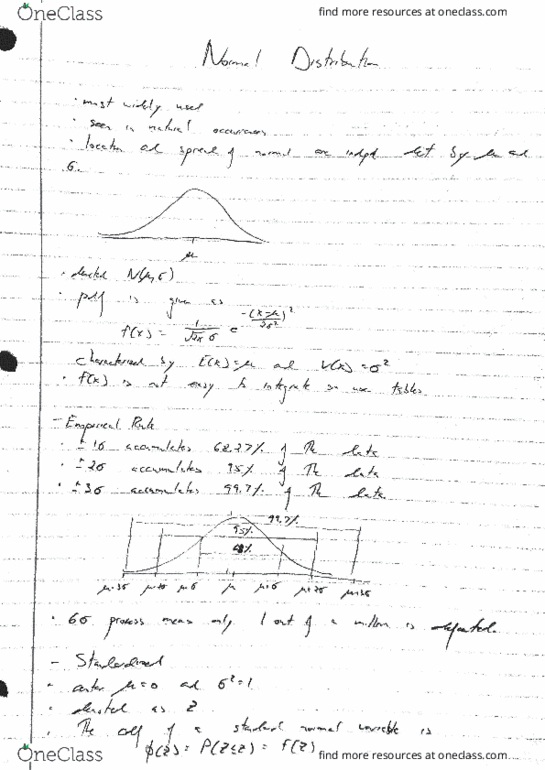 OneClass find more resources at oneclass.com
Normal Distribution
· most widely used
· seen in natural occurrences
· location and spread of normal are indpt det by μ and
σ.
μ
· denoted N(μ,σ)
· pdf is given as
f(x) = 1/√2π σ e^-(x-μ)²/2σ²
characterized by E(x)=μ and V(x)=σ²
· f(x) is not easy to integrate so use tables
- Emperical Rule
· ±1σ accumulates 68.27% of the data
· ±2σ accumulates 95% of the data
· ±3σ accumulates 99.7% of the data
99.7%
95%
68%
μ-3σ μ-2σ μ-σ μ μ+σ μ+2σ μ+3σ
· 6σ process means only 1 out of a million is defected.
- Standardized
· μ=0 and σ²=1
· denoted as Z
· The cdf of a standard normal variable is
φ(z) = P(Z≤z) = F(z)
OneClass find more resources at oneclass.com